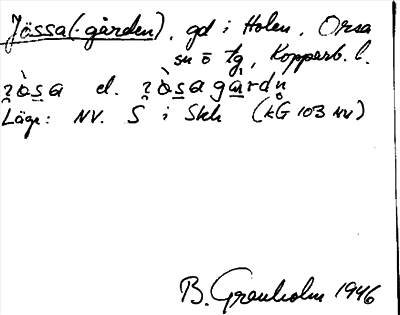 Jössa(-gården), gd i Holen, Orsa
sn o tg, Kopparb. l.
el.
Läge: NV. S i Skh (kG 103 NV)
B. Granholm 1946